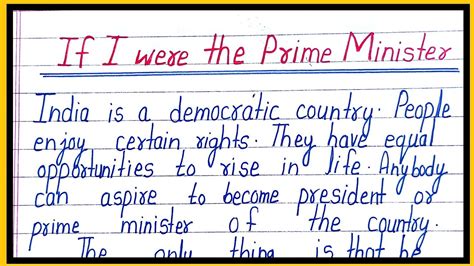 If I were the Prime Minister
India is a democratic country. People
enjoy certain rights. They have equal
opportunities to rise in life. Anybody
can aspire to become president or
prime minister of the country.
The only thing is that he